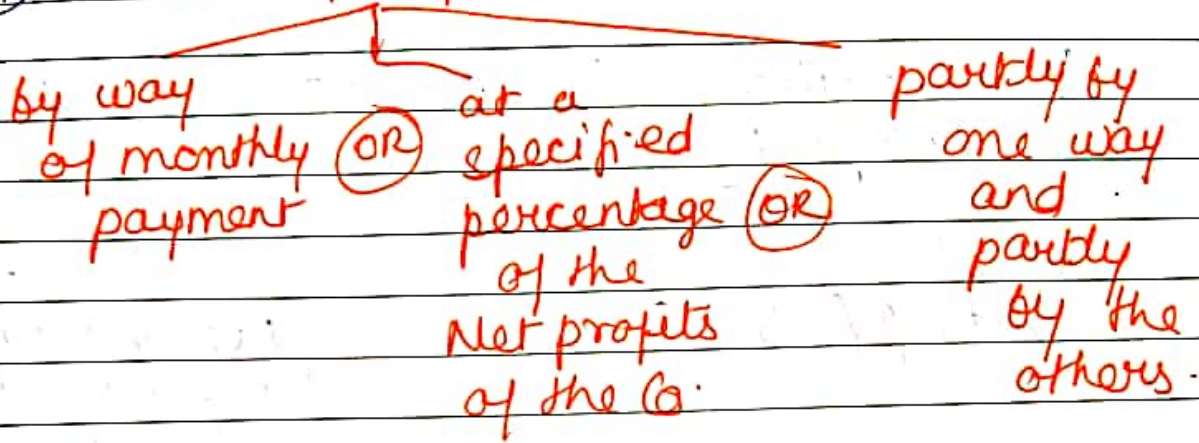 by way
of monthly
payment
OR
at a
specified
percentage
of the
Net profits
of the Co.
OR
partly by
one way
and
partly
by the
others.